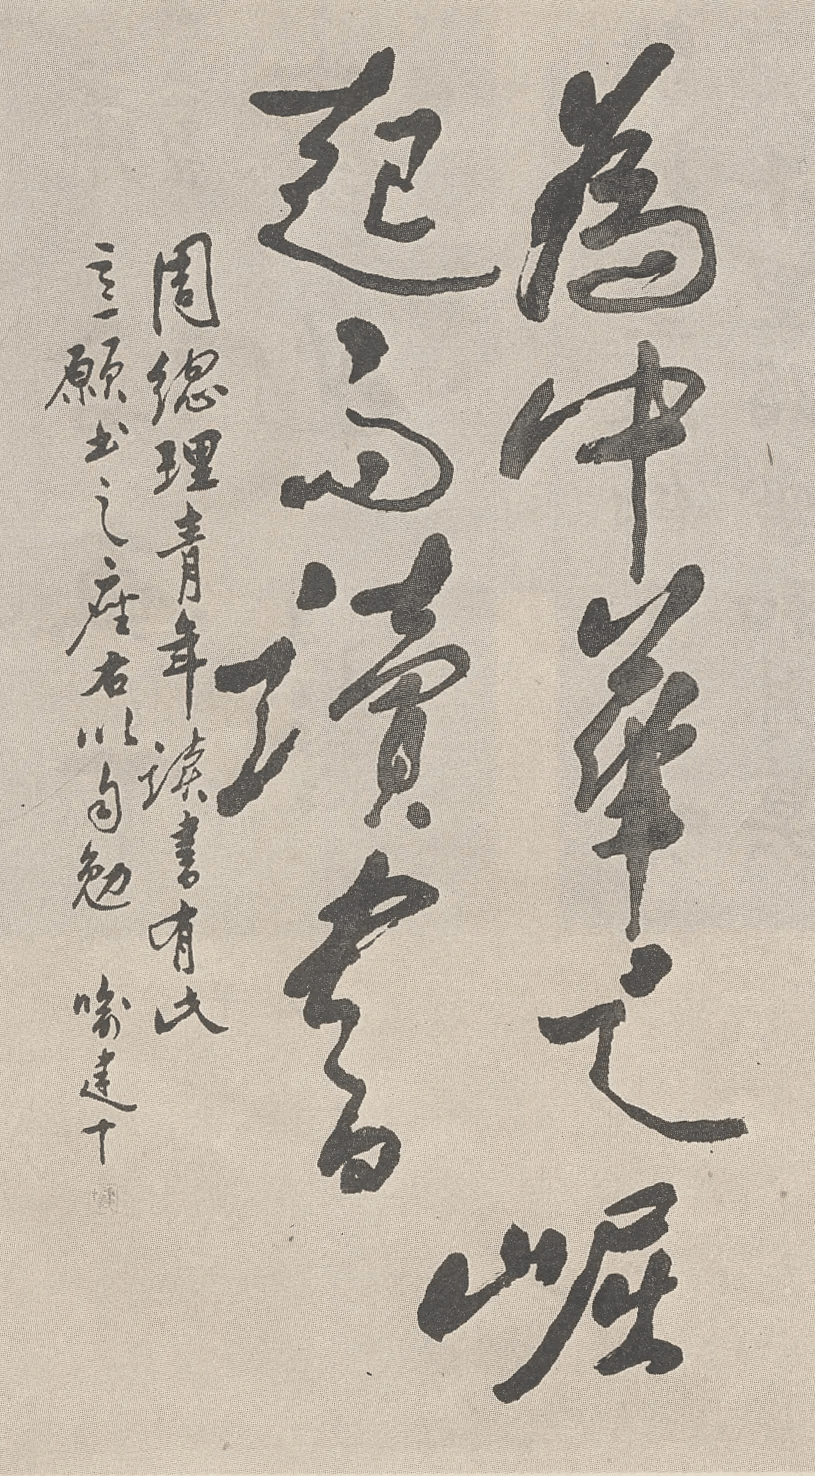 為中華之崛
起而讀書
周總理青年读書有此
立願书之座右以自勉 喻建十